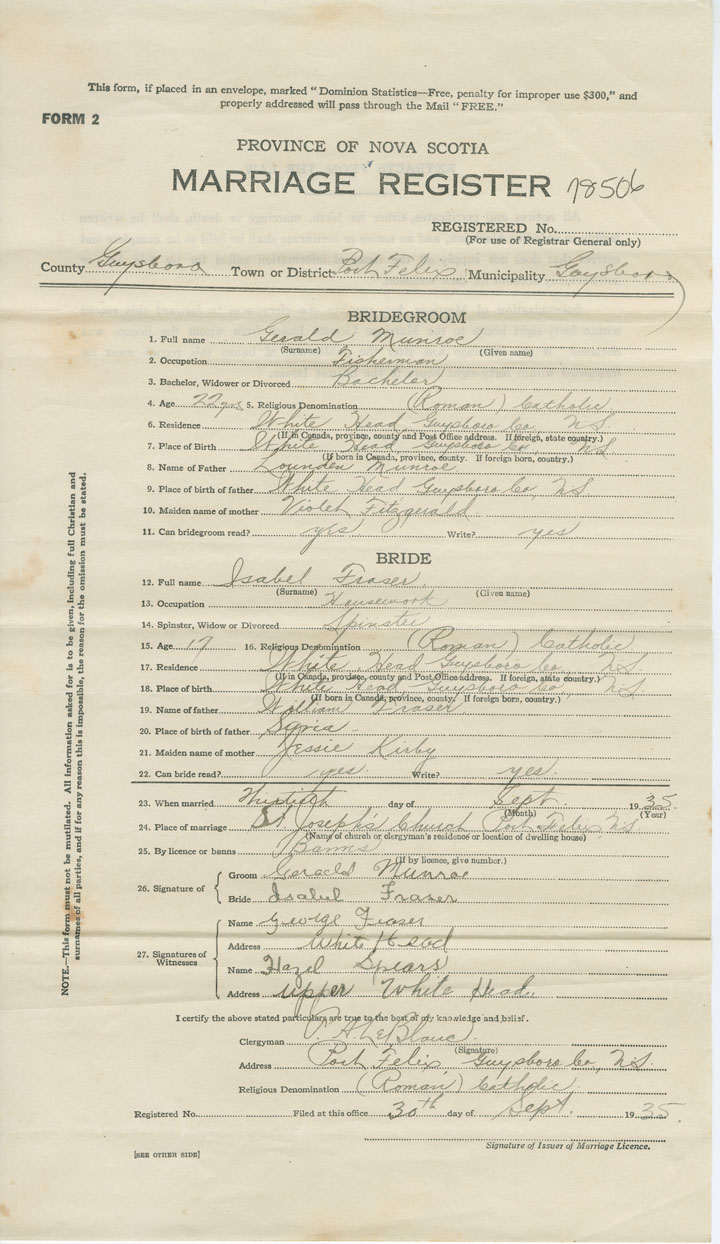 This form, if placed in an envelope, marked "Dominion Statistics—Free, penalty for improper use $300," and
properly addressed will pass through the Mail "FREE."
FORM 2
PROVINCE OF NOVA SCOTIA
MARRIAGE REGISTER 78506
REGISTERED No.
(For use of Registrar General only)
County Guysboro Town or District Port Felix Municipality Guysboro
BRIDEGROOM
1. Full name Gerald Munroe
(Surname) (Given name)
2. Occupation Fisherman
3. Bachelor, Widower or Divorced Bachelor
4. Age 22 yrs 5. Religious Denomination (Roman) Catholic
6. Residence White Head Guysboro Co, NS
(If in Canada, province, county and Post Office address. If foreign, state country.)
7. Place of Birth White Head Guysboro Co, NS
(If born in Canada, province, county. If foreign born, country.)
8. Name of Father Lounden Munroe
9. Place of birth of father White Head Guysboro Co, NS
10. Maiden name of mother Violet Fitzgerald
11. Can bridegroom read? yes Write? yes
BRIDE
12. Full name Isabel Fraser
(Surname) (Given name)
13. Occupation Housework
14. Spinster, Widow or Divorced Spinster
15. Age 17 16. Religious Denomination (Roman) Catholic
17. Residence White Head Guysboro Co, NS
(If in Canada, province, county and Post Office address. If foreign, state country.)
18. Place of birth White Head Guysboro Co, NS
(If born in Canada, province, county. If foreign born, country.)
19. Name of father William Fraser
20. Place of birth of father
21. Maiden name of mother Jessie Kirby
22. Can bride read? yes. Write? yes.
23. When married day of Sept. 1935
(Month) (Year)
24. Place of marriage St Joseph's Church Port Felix, NS
(Name of church or clergyman's residence or location of dwelling house)
25. By licence or banns Banns
(If by licence, give number.)
26. Signature of
Groom Gerald Munroe
Bride Isabel Fraser
27. Signatures of Witnesses
Name George Fraser
Address White Head
Name Hazel Spears
Address Upper White Head.
I certify the above stated particulars are true to the best of my knowledge and belief.
Clergyman A. LeBlanc
(Signature)
Address Port Felix, Guysboro Co, NS.
Religious Denomination (Roman) Catholic
Registered No. Filed at this office 30th day of Sept. 1935.
Signature of Issuer of Marriage Licence.
[SEE OTHER SIDE]
NOTE.—This form must not be mutilated. All information asked for is to be given, including full Christian and
surnames of all parties, and if for any reason this is impossible, the reason for the omission must be stated.